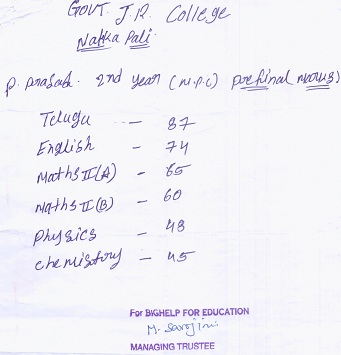 GOVT. J.R. College
Nakka Pali
P. Prasad. 2nd year (M.P.C) prefinal marks)
Telugu - 87
English - 74
Maths II(A) - 65
Maths II(B) - 60
Physics - 48
chemistory - 45
For BIGHELP FOR EDUCATION
M. Sarojini
MANAGING TRUSTEE